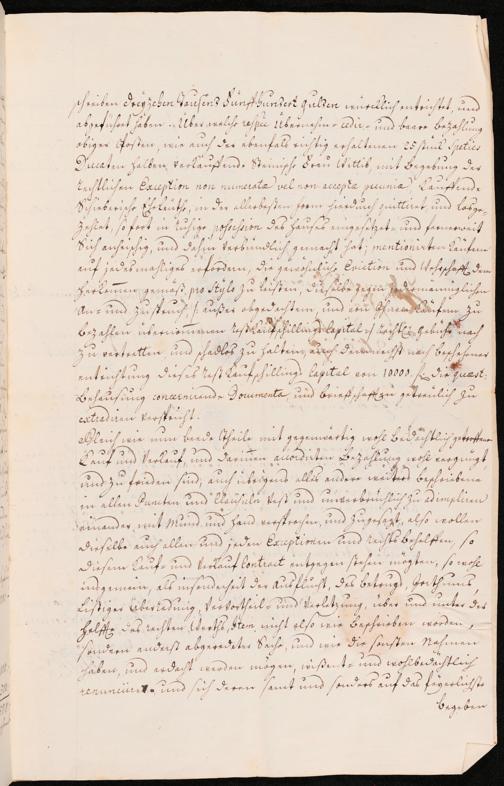 schreiben dreyzehen Tausend Fünffhundert Gulden würcklich entrichtet, und
abgeführt haben. Über welche respve Übernehmen cedir- und baare bezahlung
obiger Posten, wie auch der ebenfals richtig erhaltenen 25 stück Species
Ducaten halben, verkäuffende Steinische Frau Wittib, mit begebung der
rechtlichen Exception non numerata vel non accepta pecunia, kauffende
Eheleuthe, in der allerbesten form hierdurch quittiret, und losge-
zehlet, sofort in ruhige possession des Hauses eingesetzet, und
sich anheischig, und dahin verbindlich gemacht hat; mentionirten käufern
auf jedesmahliges erfordern, die gewöhnliche Eviction und Wehrschafft dem
herkommen gemäß pro Stylo zu leisten, dieselbe gegen männiglichen
An- und zuspruch, außer obgedachtem, und von käufern zu
bezahlen übernommenen Rest kauffschillings Capital gebühr nach
zu vertretten, und schadlos zu halten, auch demnechst nach beschehener
entrichtung dieses Rest kauffschillings Capital von 10000 f. die quaest:
behausung concernirende Documenta, und brieffschafften getreulich zu
extradiren verspricht.
Gleich wie nun beede Theile mit gegenwärtig wohl bedächtlich getroffenen
Kauf und Verkauf, und Bezahlung wohl vergnügt
und zu frieden sind, auch übrigens alles andere weiters beschriebene
in allen Puncten und Clausuln vest und unverbrüchlich zu adimpliren
einander mit Mund und Hand versprochen, und zugesagt, also wollen
dieselbe auch allen und jeden Exceptionen und Rechts behelffen, so
diesem kauf- und Verkauf Contract entgegen stehen mögten, so wohl
ingemein, als insonderheit der Ausflucht, des betrugs, Irrthums,
listiger überredung, Vervortheil- und Verletzung, über und unter der
Helffte des rechten Werths, nicht also wie beschrieben worden,
sondern anderst abgeredeter Sache, und wie die sonsten Nahmen
haben, und erdacht werden mögen, wissent- und wohlbedächtlich
renunciiret, und sich deren samt und sonders auf das feyerlichste
begeben